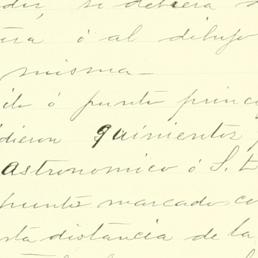 si debiera
ó al dibujo
misma—
ó punto princ
dieron quinientos
Astronomico ó S. E
punto marcado co
sta distancia de la